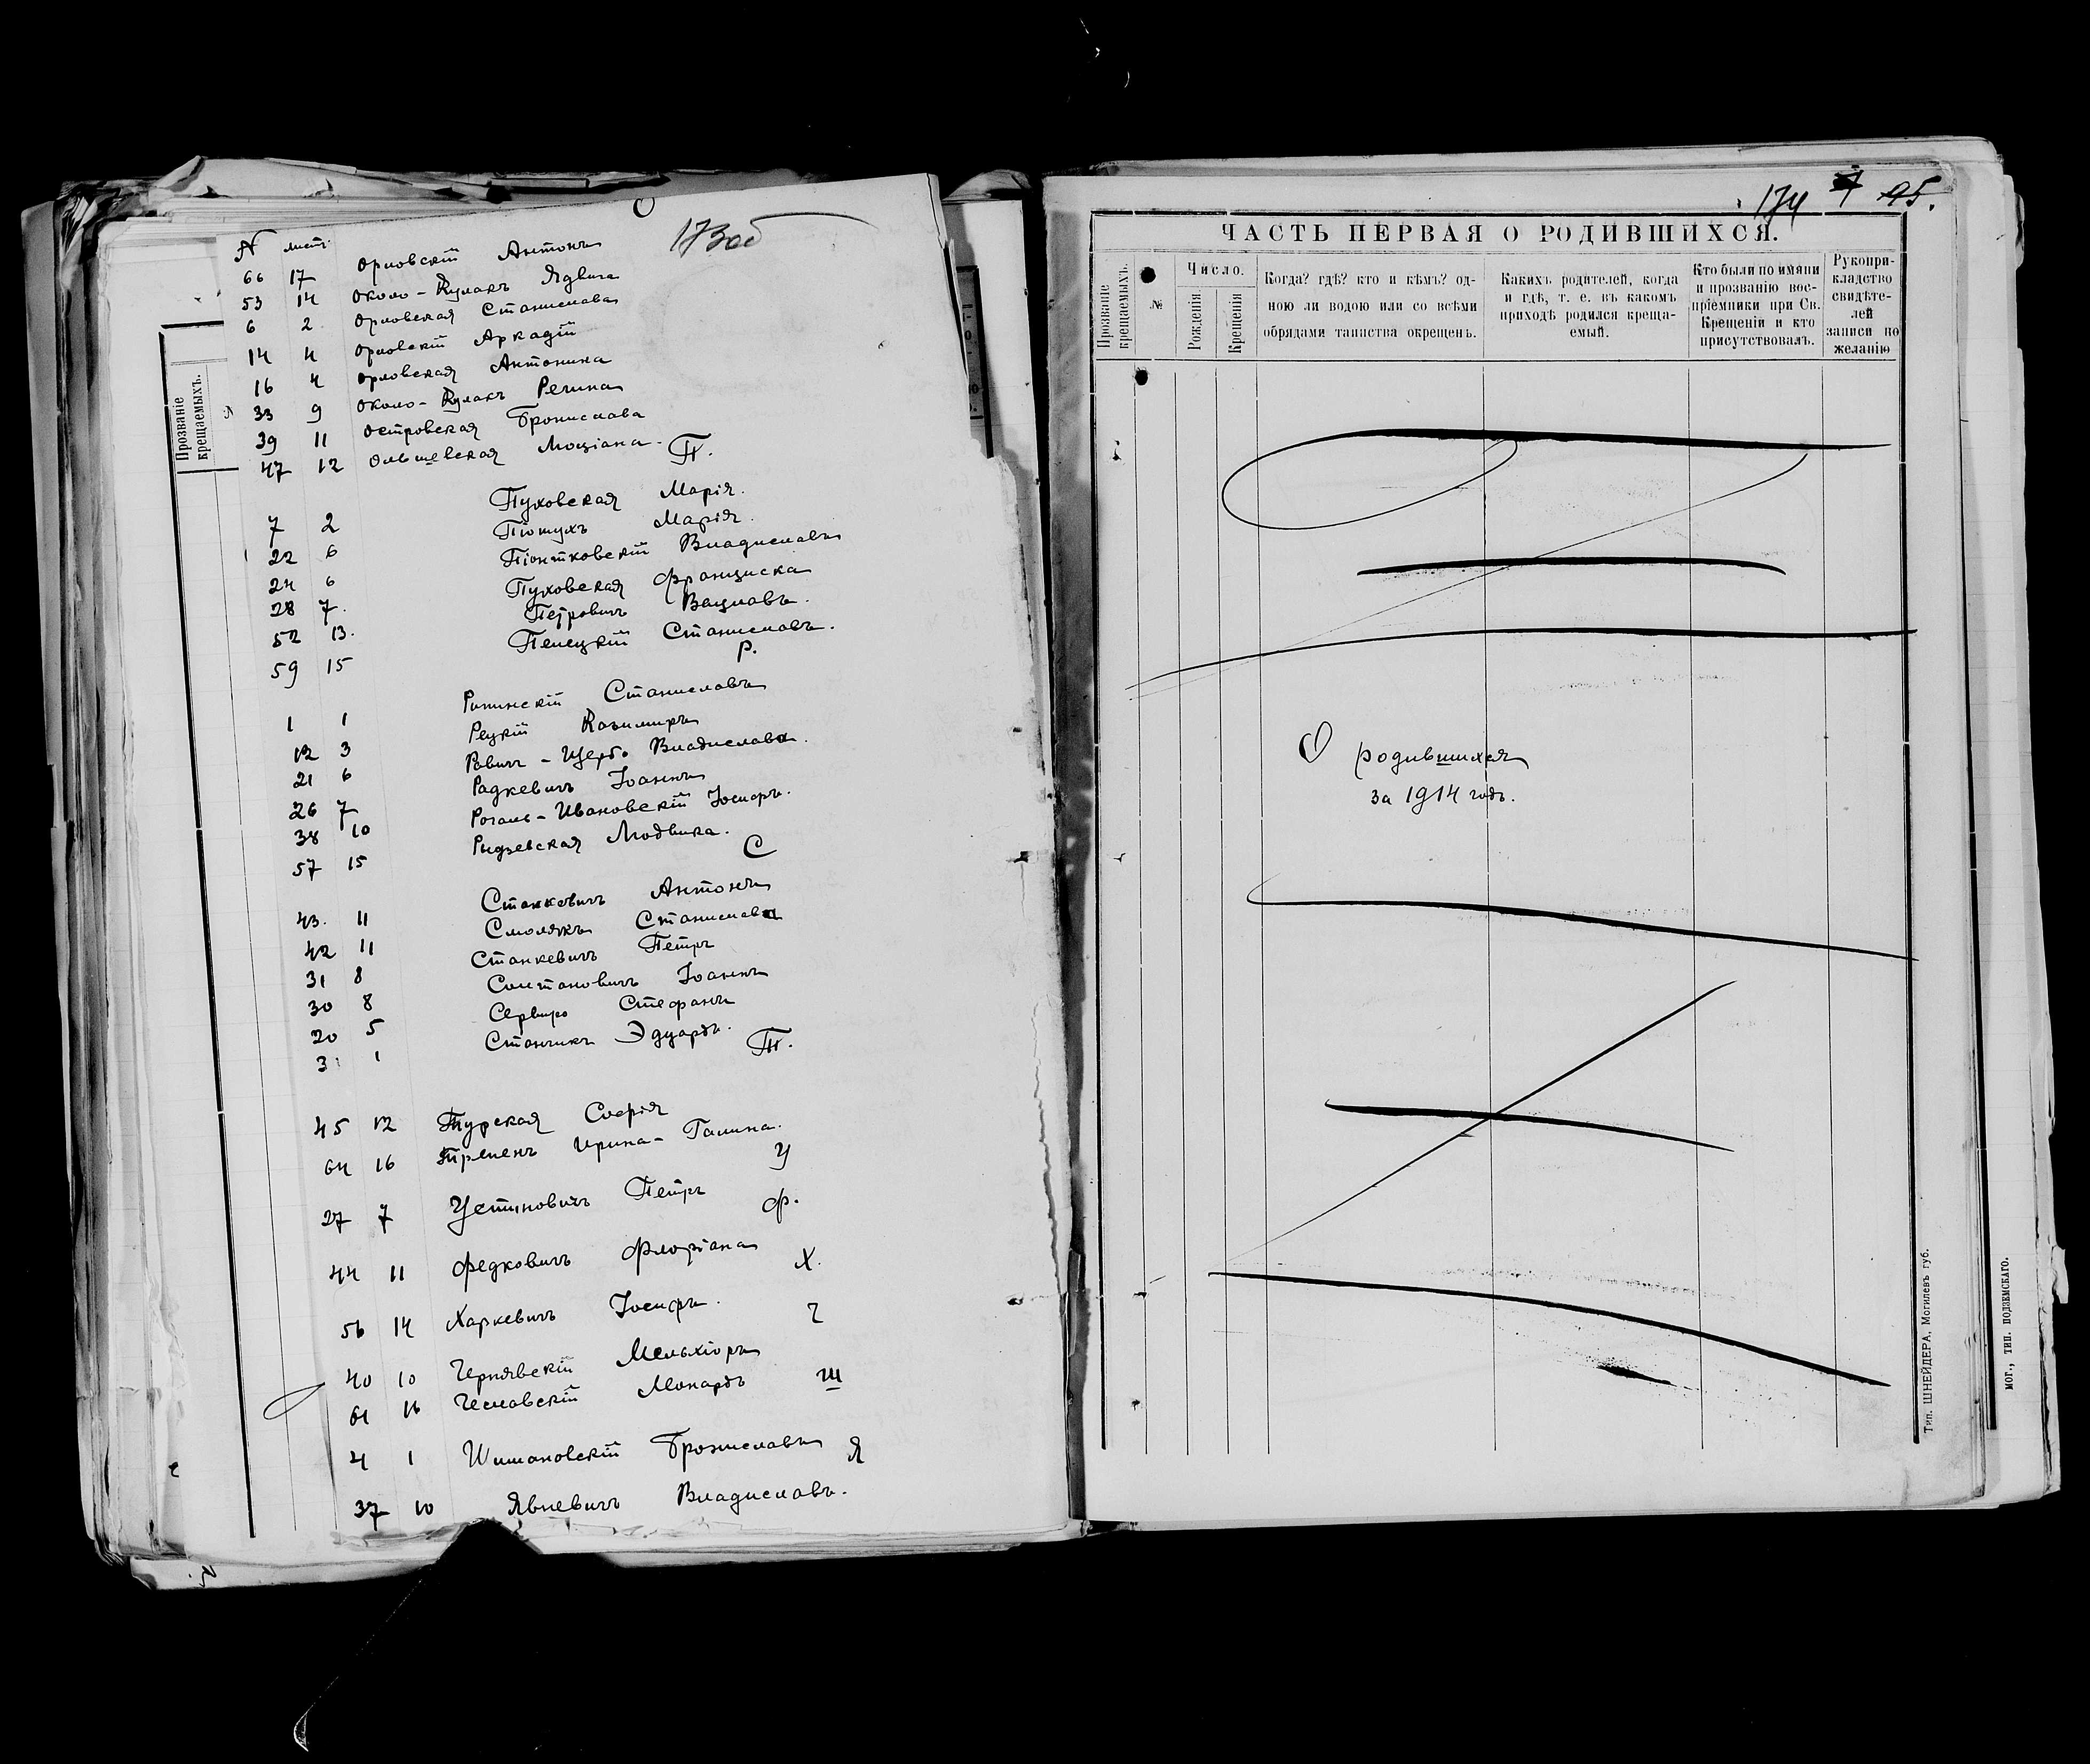 О
173об
№ листъ
66 17 Орловскій Антонъ
53 14 Около-Кулакъ Ядвига
6 2 Орловская Станислава
14 4 Орловскій Аркадій
16 4 Орловская Антонина
33 9 Около-Кулакъ Регина
39 11 Островская Бронислава
47 12 Ольшевская Моціана
П.
7 2 Пуховская Марія.
22 6 Петухъ Марія.
24 6 Піонтковскій Владиславъ
28 7. Пуховская Франциска
52 13. Петровичъ Вацлавъ.
59 15 Пелецкій Станиславъ.
Р.
1 1 Рипинскій Станиславъ
12 3 Рецкій Казимиръ
21 6 Равичъ-Щербо Владислава.
26 7 Радкевичъ Іоаннъ
38 10 Рогаль-Ивановскій Іосифъ.
57 15 Рыдзевская Людвика.
С
43. 11 Станкевичъ Антонъ
42 11 Смолякъ Станислава
31 8 Станкевичъ Петръ
30 8 Солтановичъ Іоаннъ
20 5 Сервиро Стефанъ
3 1 Станчикъ Эдуардъ.
Т.
45 12 Турская Софія
64 16 Трепенъ Ирина-Галина.
У
27 7 Устиновичъ Петръ
Ф.
44 11 Федковичъ Флоріана
Х.
56 14 Харкевичъ Іосифъ.
Ч
40 10 Чернявскій Мельхіоръ
61 16 Чеславскій Монардъ
Ш
4 1 Шимановскій Брониславъ
Я
37 10 Явневичъ Владиславъ.
Прозваніе крещаемыхъ.
174 95.
ЧАСТЬ ПЕРВАЯ О РОДИВШИХСЯ.
Прозваніе крещаемыхъ.
№
Число.
Рожденія
Крещенія
Когда? гдѣ? кто и кѣмъ? од-
ною ли водою или со всѣми
обрядами таинства окрещенъ.
Какихъ родителей, когда
и гдѣ, т. е. въ какомъ
приходѣ родился креща-
емый.
Кто были по имяни
и прозванію вос-
пріемники при Св.
Крещеніи и кто
присутствовалъ.
Рукопри-
кладство
свидѣте-
лей
записи по
желанію
О родившихся
за 1914 годъ.
Тип. ШНЕЙДЕРА, Могилевъ губ.
МОГ., ТИП. ПОДЗЕМСКАГО.